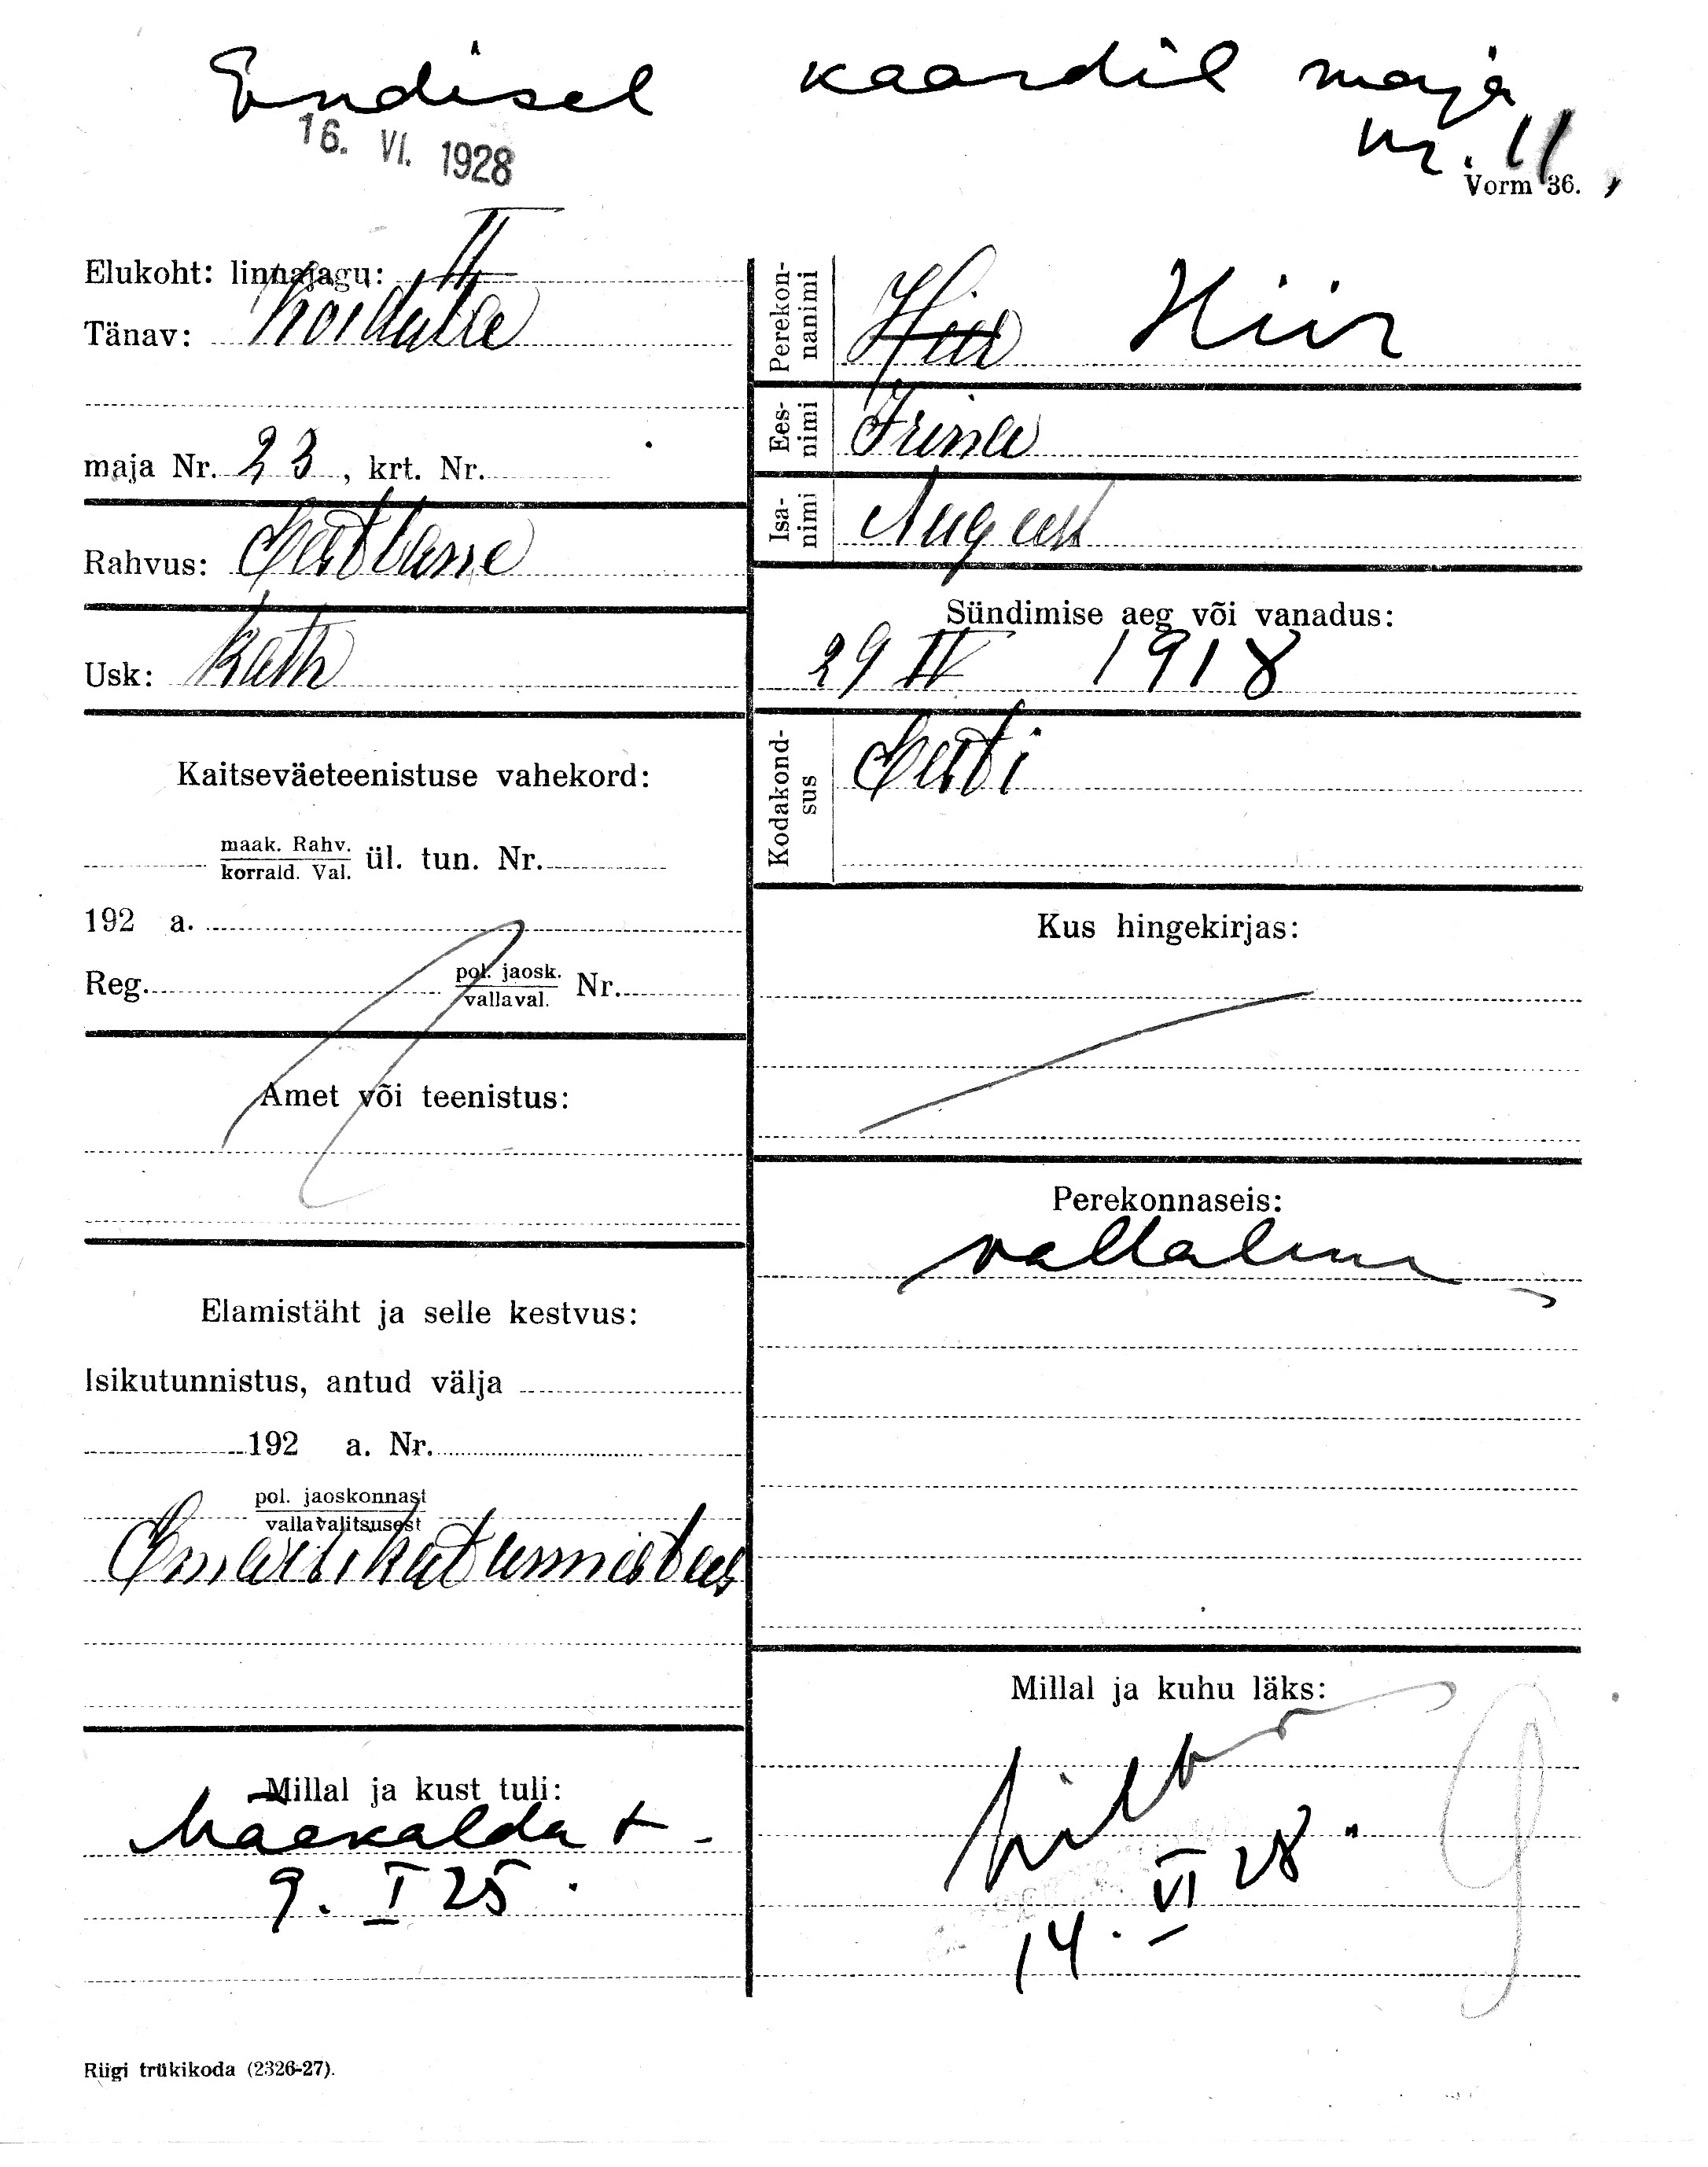 Endisel kaardil maja
nr. 11,
16. VI. 1928
Vorm 36.
Elukoht: linnajagu: II
Tänav: Koidula
maja Nr. 23, krt. Nr.
Rahvus: Eestlane
Usk: Kath
Kaitseväeteenistuse vahekord:
maak. Rahv.
korrald. Val. ül. tun. Nr.
192 a.
Reg. pol. jaosk.
vallaval. Nr.
Amet või teenistus:
Elamistäht ja selle kestvus:
Isikutunnistus, antud välja
192 a. Nr.
pol. jaoskonnast
vallavalitsusest
Ema isikutunnistus
Millal ja kust tuli:
Mäekalda t-
9. I 25.
Perekon-
nanimi
Hiir Hiir
Ees-
nimi
Irina
Isa-
nimi
August
Sündimise aeg või vanadus:
29 IV 1918
Kodakond-
sus
Eesti
Kus hingekirjas:
Perekonnaseis:
vallaline
Millal ja kuhu läks:
14. VI 28.
Riigi trükikoda (2326-27).